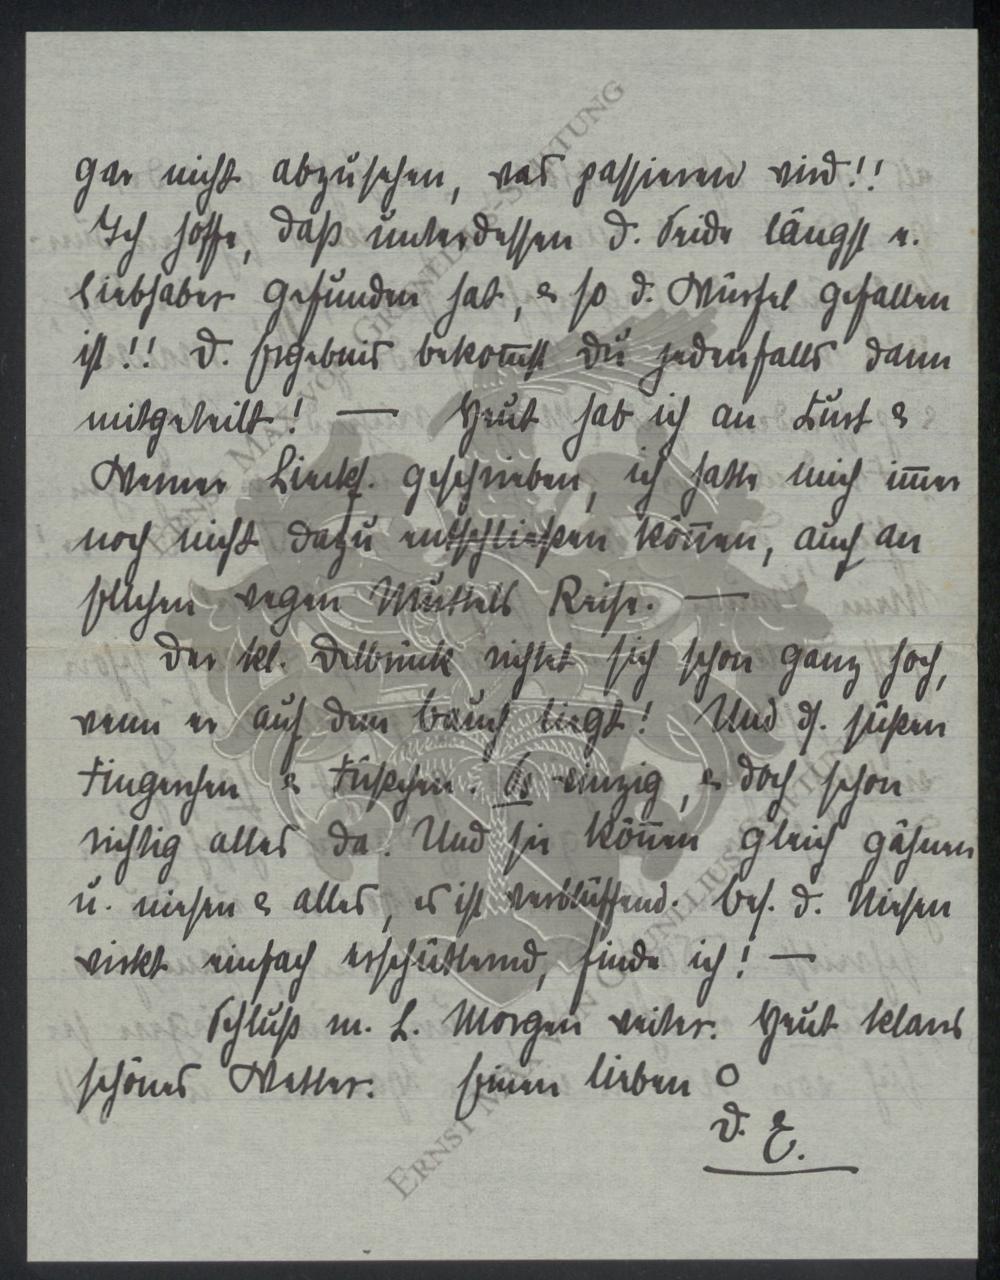 gar nicht abzusehen, was passieren wird!!
Ich hoffe, daß unterdessen d. Seide längst e.
Liebhaber gefunden hat, & so d. Würfel gefallen
ist!! D. Ergebnis bekom̅st Du jedenfalls dann
mitgeteilt! — Heut hab ich an Kurt &
Werner geschrieben, ich hatte mich im̅er
noch nicht dazu entschließen kön̅en, auch an
wegen Muttels Reise. —
Der kl. Delbrück richtet sich schon ganz hoch,
wenn er auf dem Bauch liegt! Und ds. süßen
Fingerchen & Füßchen. So einzig, & doch schon
richtig alles da. Und sie kön̅en gleich gähnen
u. niesen & alles, es ist verblüffend. Bes. d. Niesen
wirkt einfach erschütternd, finde ich! —
Schluß m. L. Morgen weiter. Heut klares
schönes Wetter. Einen lieben O
D. E.
ERNST MAX VON GRUNELIUS-STIFTUNG
ERNST MAX VON GRUNELIUS-STIFTUNG